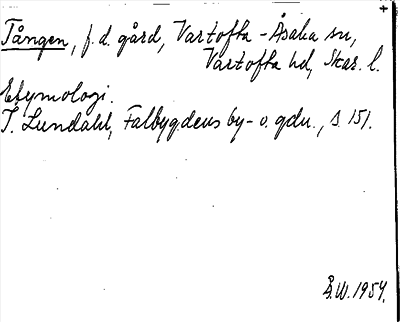 +
Tången, f.d. gård, Vartofta-Åsaka sn,
Vartofta hd, Skar. l.
Etymologi.
I. Lundahl, Falbygdens by- o. gdn., s 151.
Å.W. 1954.